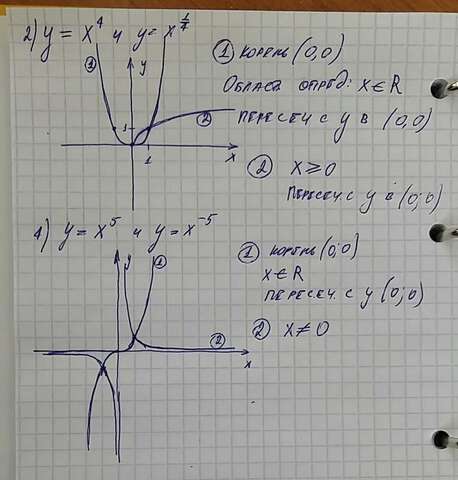 2) y = x⁴ и y = x^(1/4)
① корень (0,0)
Област опред: x ∈ R
пересеч с y в (0,0)
② x ≥ 0
пересеч. с y в (0;0)
① y
1
②
1 x
4) y = x⁵ и y = x⁻⁵
① корень (0;0)
x ∈ R
пересеч. с y (0;0)
② x ≠ 0
y ①
②
x